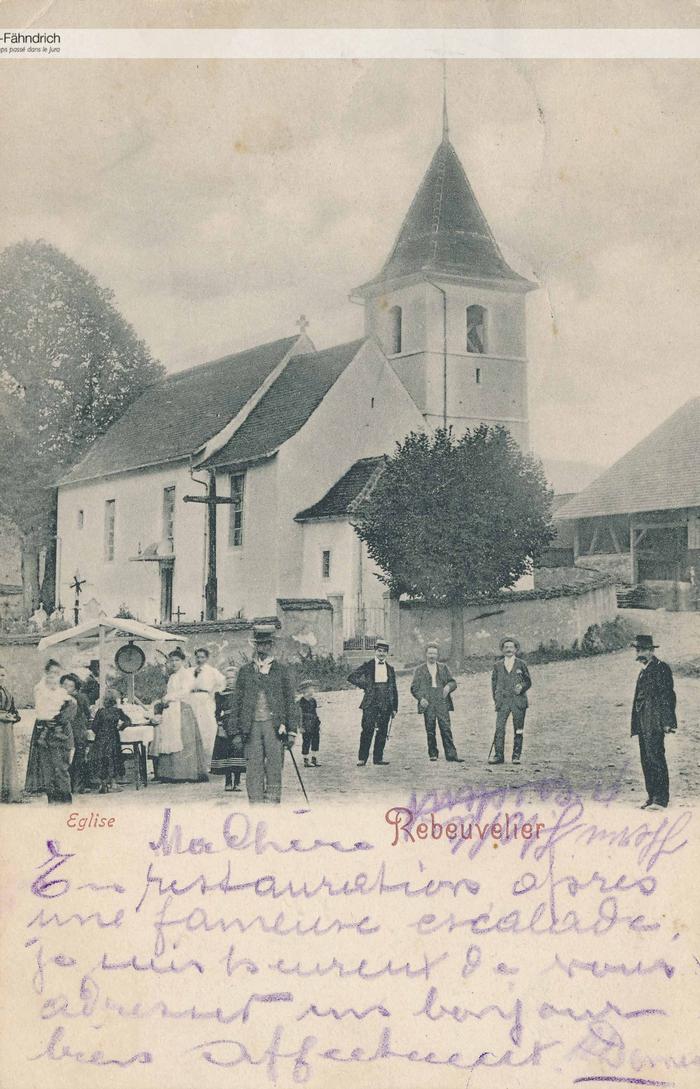 -Fähndrich
ps passé dans le jura
Eglise
Rebeuvelier
Ma Chère
En restauration après
une fameuse escalade,
je suis heureux de vous
adresser un bonjour
bien affectueux.